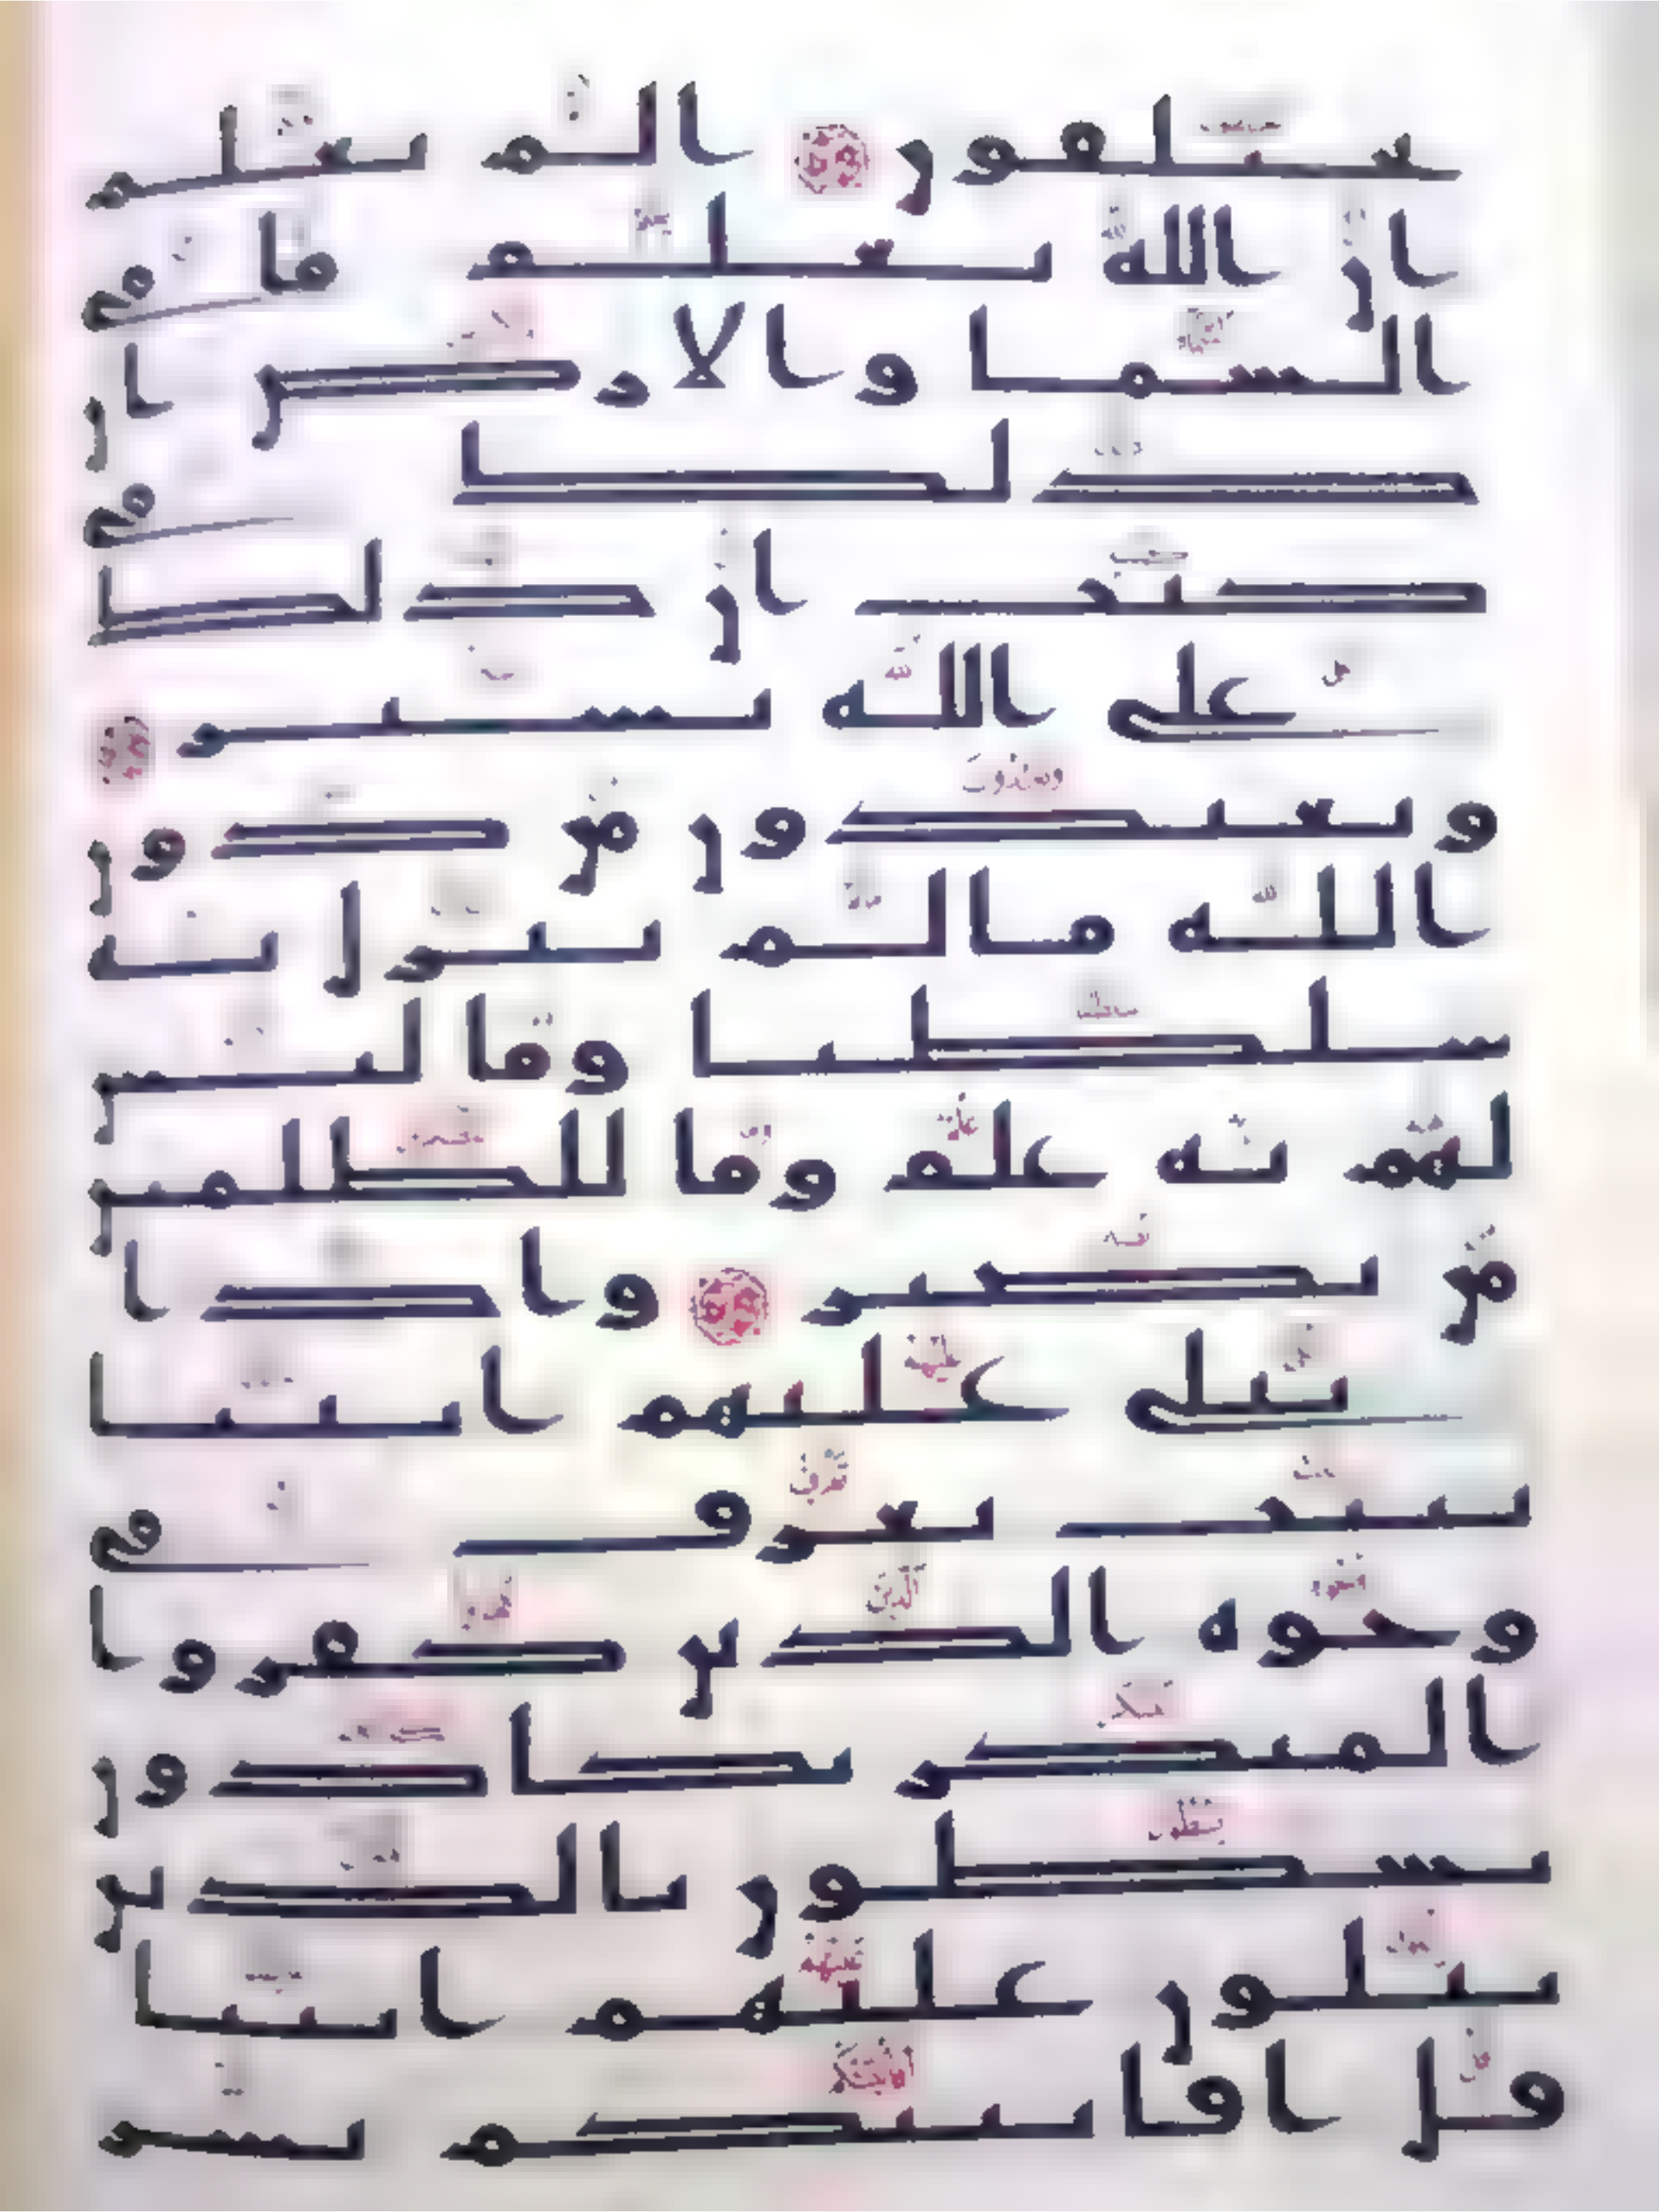 تختلفون الم تعلم
ان الله يعلم ما في
السما والارض ان
ذلك في
كتب ان ذلك
على الله يسير
ويعبدون من دون
الله ما لم ينزل به
سلطنا وما ليس
لهم به علم وما للظلمين
من نصير واذا
تتلى عليهم ايتنا
بينت تعرف في
وجوه الذين كفروا
المنكر يكادون
يسطون بالذين
يتلون عليهم ايتنا
قل افانبئكم بشر